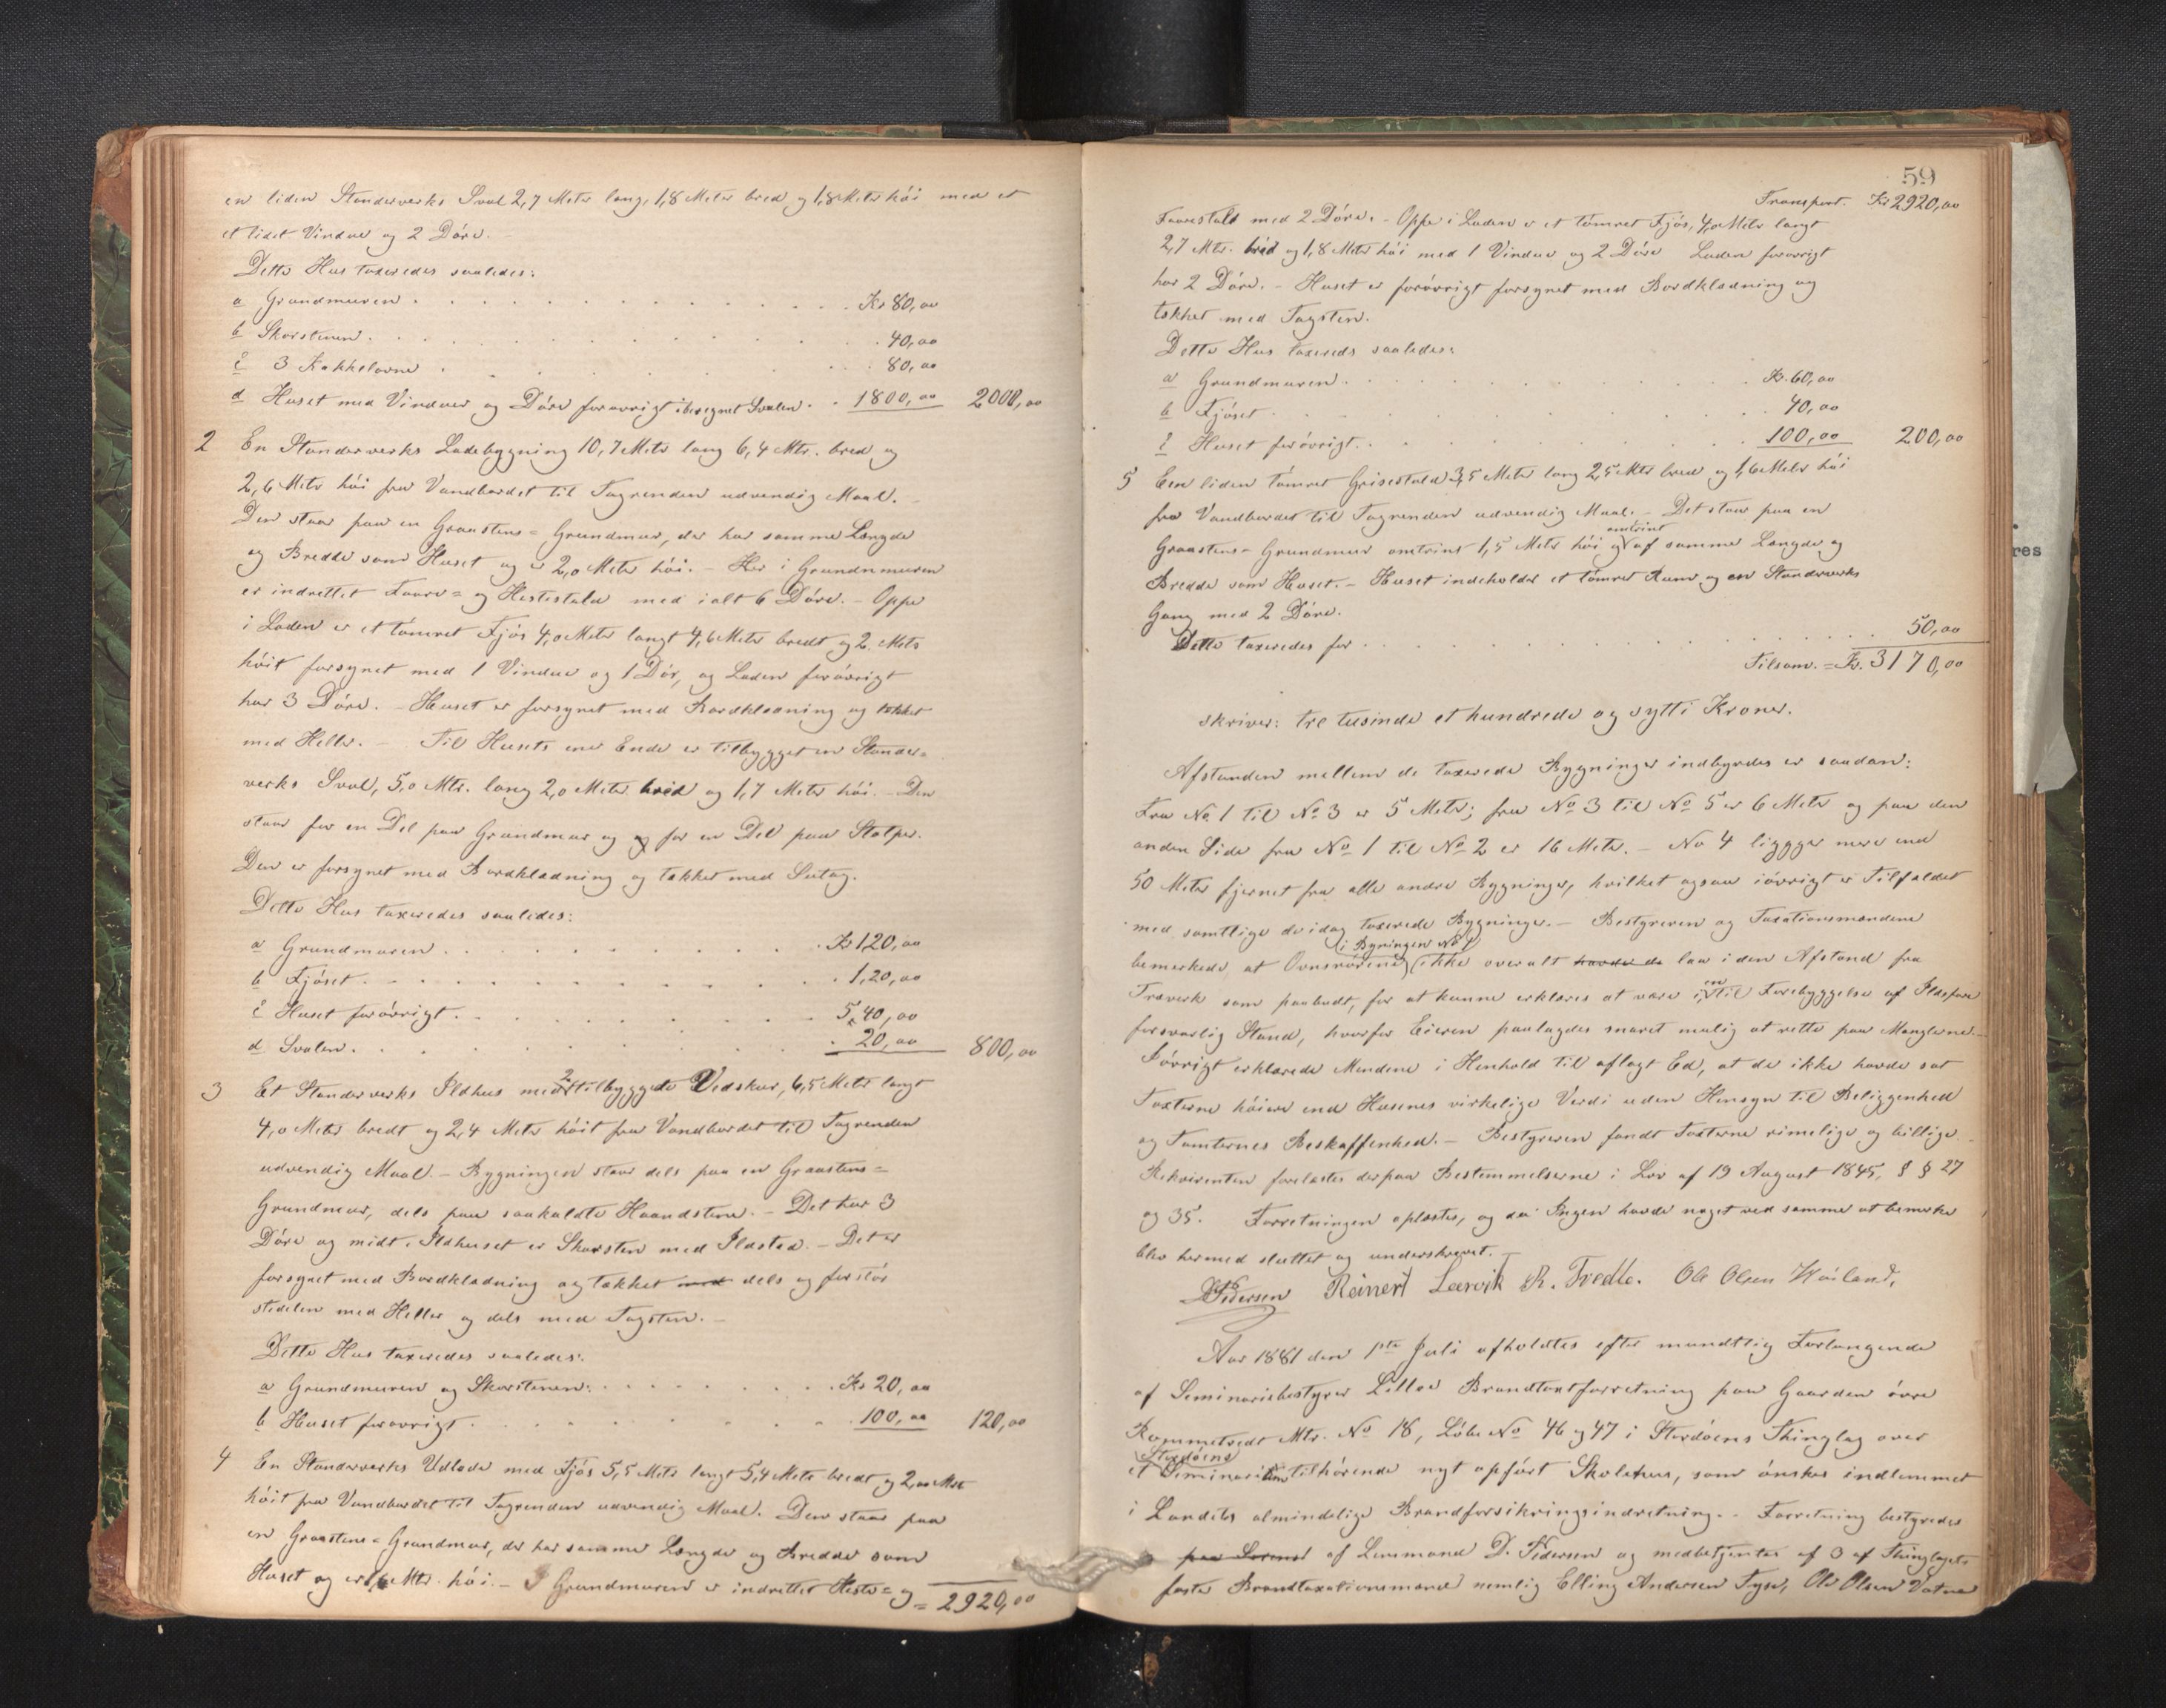 en liden Standerverks Sval 2,7 Meter lang, 1,8 Meter bred og 1,8 Meter höi med et
et lidet Vindue og 2 Döre.
Dette Hus taxeredes saaledes:
a Grundmuren . . . . Kr 80,00
b Skorstenen . . . . 40,00
c 3 Kakkelovne . . . . 80,00
d Huset med Vinduer og Döre forøvrigt iberegnet Svalen . . 1800,00 2000,00
2 En Standerverks Ladebygning 10,7 Meter lang 6,4 Mtr. bred og
2,6 Meter höi fra Vandbordet til Tagrenden udvendig Maal. –
Den staar paa en Graastens= Grundmur, der har samme Længde
og Bredde som Huset og er 2,0 Meter höi. – Her i Grundmuren
er indrettet Faare= og Hestestald med ialt 6 Döre. – Oppe
i Laden er et tömret Fjös 4,0 Meter langt 4,6 Meter bredt og 2. Meter
höit forsynet med 1 Vindue og 1 Dör, og Laden forövrigt
har 3 Döre. – Huset er forsynet med Bordklædning og tækket
med Heller. – Til Husets ene Ende er tilbygget en Stander=
verks Sval, 5,0 Mtr. lang 2,0 Meter bred og 1,7 Meter höi. – Den
staar for en Del paa Grundmur og og for en Del paa Stolper.
Den er forsynet med Bordklædning og tækket med Sutag.
Dette Hus taxeredes saaledes:
a Grundmuren . . . . Kr 120,00
b Fjöset . . . . 120,00
c Huset forövrigt . . . . 540,00
d Svalen . . . . 20,00 800,00
3 Et Standerverks Ildhus med 2 tilbyggede Vedskur, 6,5 Meter langt
4,0 Meter bredt og 2,4 Meter höit fra Vandbordet til Tagrenden
udvendig Maal. – Bygningen staar dels paa en Graastens=
Grundmur, dels paa saakaldte Haandstene. – Det har 3
Döre og midt i Ildhuset er Skorsten med Ildsted. – Det er
forsynet med Bordklædning og tækket med dels og for stör
stedelen med Heller og dels med Tagsten. –
Dette Hus taxeredes saaledes:
a Grundmuren og Skorstenen: . . . . Kr 20,00
b Huset forøvrigt . . . . 100,00 120,00
4 En Standerverks Udlade med Fjös 5,5 Meter langt 5,4 Meter bredt og 2,00 Mtr
höit fra Vandbordet til Tagrenden udvendig Maal. Den staar paa
en Graastens= Grundmur, der har samme Længde og Bredde som
Huset og er 1,6 Mtr. höi. – I Grundmuren er indrettet Heste= og
= 2920,00
59
Transport. Kr 2920,00
Faarestald med 2 Döre. – Oppe i Laden er et tömret Fjös, 4,0 Meter langt
2,7 Mtr. bred og 1,8 Meter höi med 1 Vindue og 2 Döre Laden forøvrigt
har 2 Döre. – Huset er forövrigt forsynet med Bordklædning og
tækket med Tagsten.
Dette Hus taxereds saaledes:
a Grundmuren . . . . Kr. 60,00
b Fjöset . . . . 40,00
c Huset forövrigt . . . . 100,00 200,00
5 Een liden tömret Grisestald 3,5 Meter lang 2,5 Mtr bred og 1,6 Meter höi
fra Vandbordet til Tagrenden udvendig Maal. – Det staar paa en
Graastens= Grundmur omtrint 1,5 Meter höi og omtrint af samme Længde og
Bredde som Huset. – Huset indeholder et tömret Rum og en Standerverks
Gang med 2 Döre.
Dette taxeredes for . . . . 50,00
Tilsam. = Kr. 3170,00
skriver: tre tusinde et hundrede og sytti Kroner.
Afstanden mellem de taxerede Bygninger indbyrdes er saadan:
Fra No 1 til No 3 er 5 Meter; fra No 3 til No 5 er 6 Meter og paa den
anden Side fra No 1 til No 2 er 16 Meter. – No 4 ligger mere end
50 Meter fjernet fra alle andre Bygninger, hvilket ogsaa iövrigt er Tilfældet
med samtlige de idag taxerede Bygninger. – Bestyreren og Taxationsmændene
bemerkede, at Ovnsrörene i Bygningen No 1 ikke overalt havde de laa i den Afstand fra
Træverk som paabudt, for at kunne erklæres at være i en til Forebyggelse af Ildsfare
forsvarlig Stand, hvorfor Eieren paalagdes snarest mulig at rette paa Manglerne. –
Iövrigt erklærede Mændene i Henhold til aflagt Ed, at de ikke havde sat
Taxterne höiere end Husenes virkelige Værdi uden Hensyn til Beliggenhed
og Tomternes Beskaffenhed. – Bestyreren fandt Taxterne rimelige og billige.
Rekvirenten forelæstes derpaa Bestemmelserne i Lov af 19 August 1845, § § 27
og 35. Forretningen oplæstes, og da Ingen havde noget ved samme at bemerke
blev hermed sluttet og underskrevet. –
DPedersen Reinert Leervik R. Tvedte. Ole Olsen Høiland,
Aar 1881 den 1ste Juli afholdtes efter mundtlig Forlangende
af Seminariebestyrer Lilloe Brandtaxtforretning paa Gaarden övre
Rommetvedt Mtr. No 18, Löbe No 46 og 47 i Stordöens Thinglag over
et Stordöens Seminarium tilhörende nyt opfört Skolehus, som önskes indlemmet
i Landets almindelige Brandforsikringsindretning. – Forretning bestyredes
paa Lensmand af Lensmand D. Pedersen og medbetjentes af 3 af Thinglagets
faste Brandtaxationsmænd nemlig Elling Andersen Tyse, Ole Olsen Vatne
res